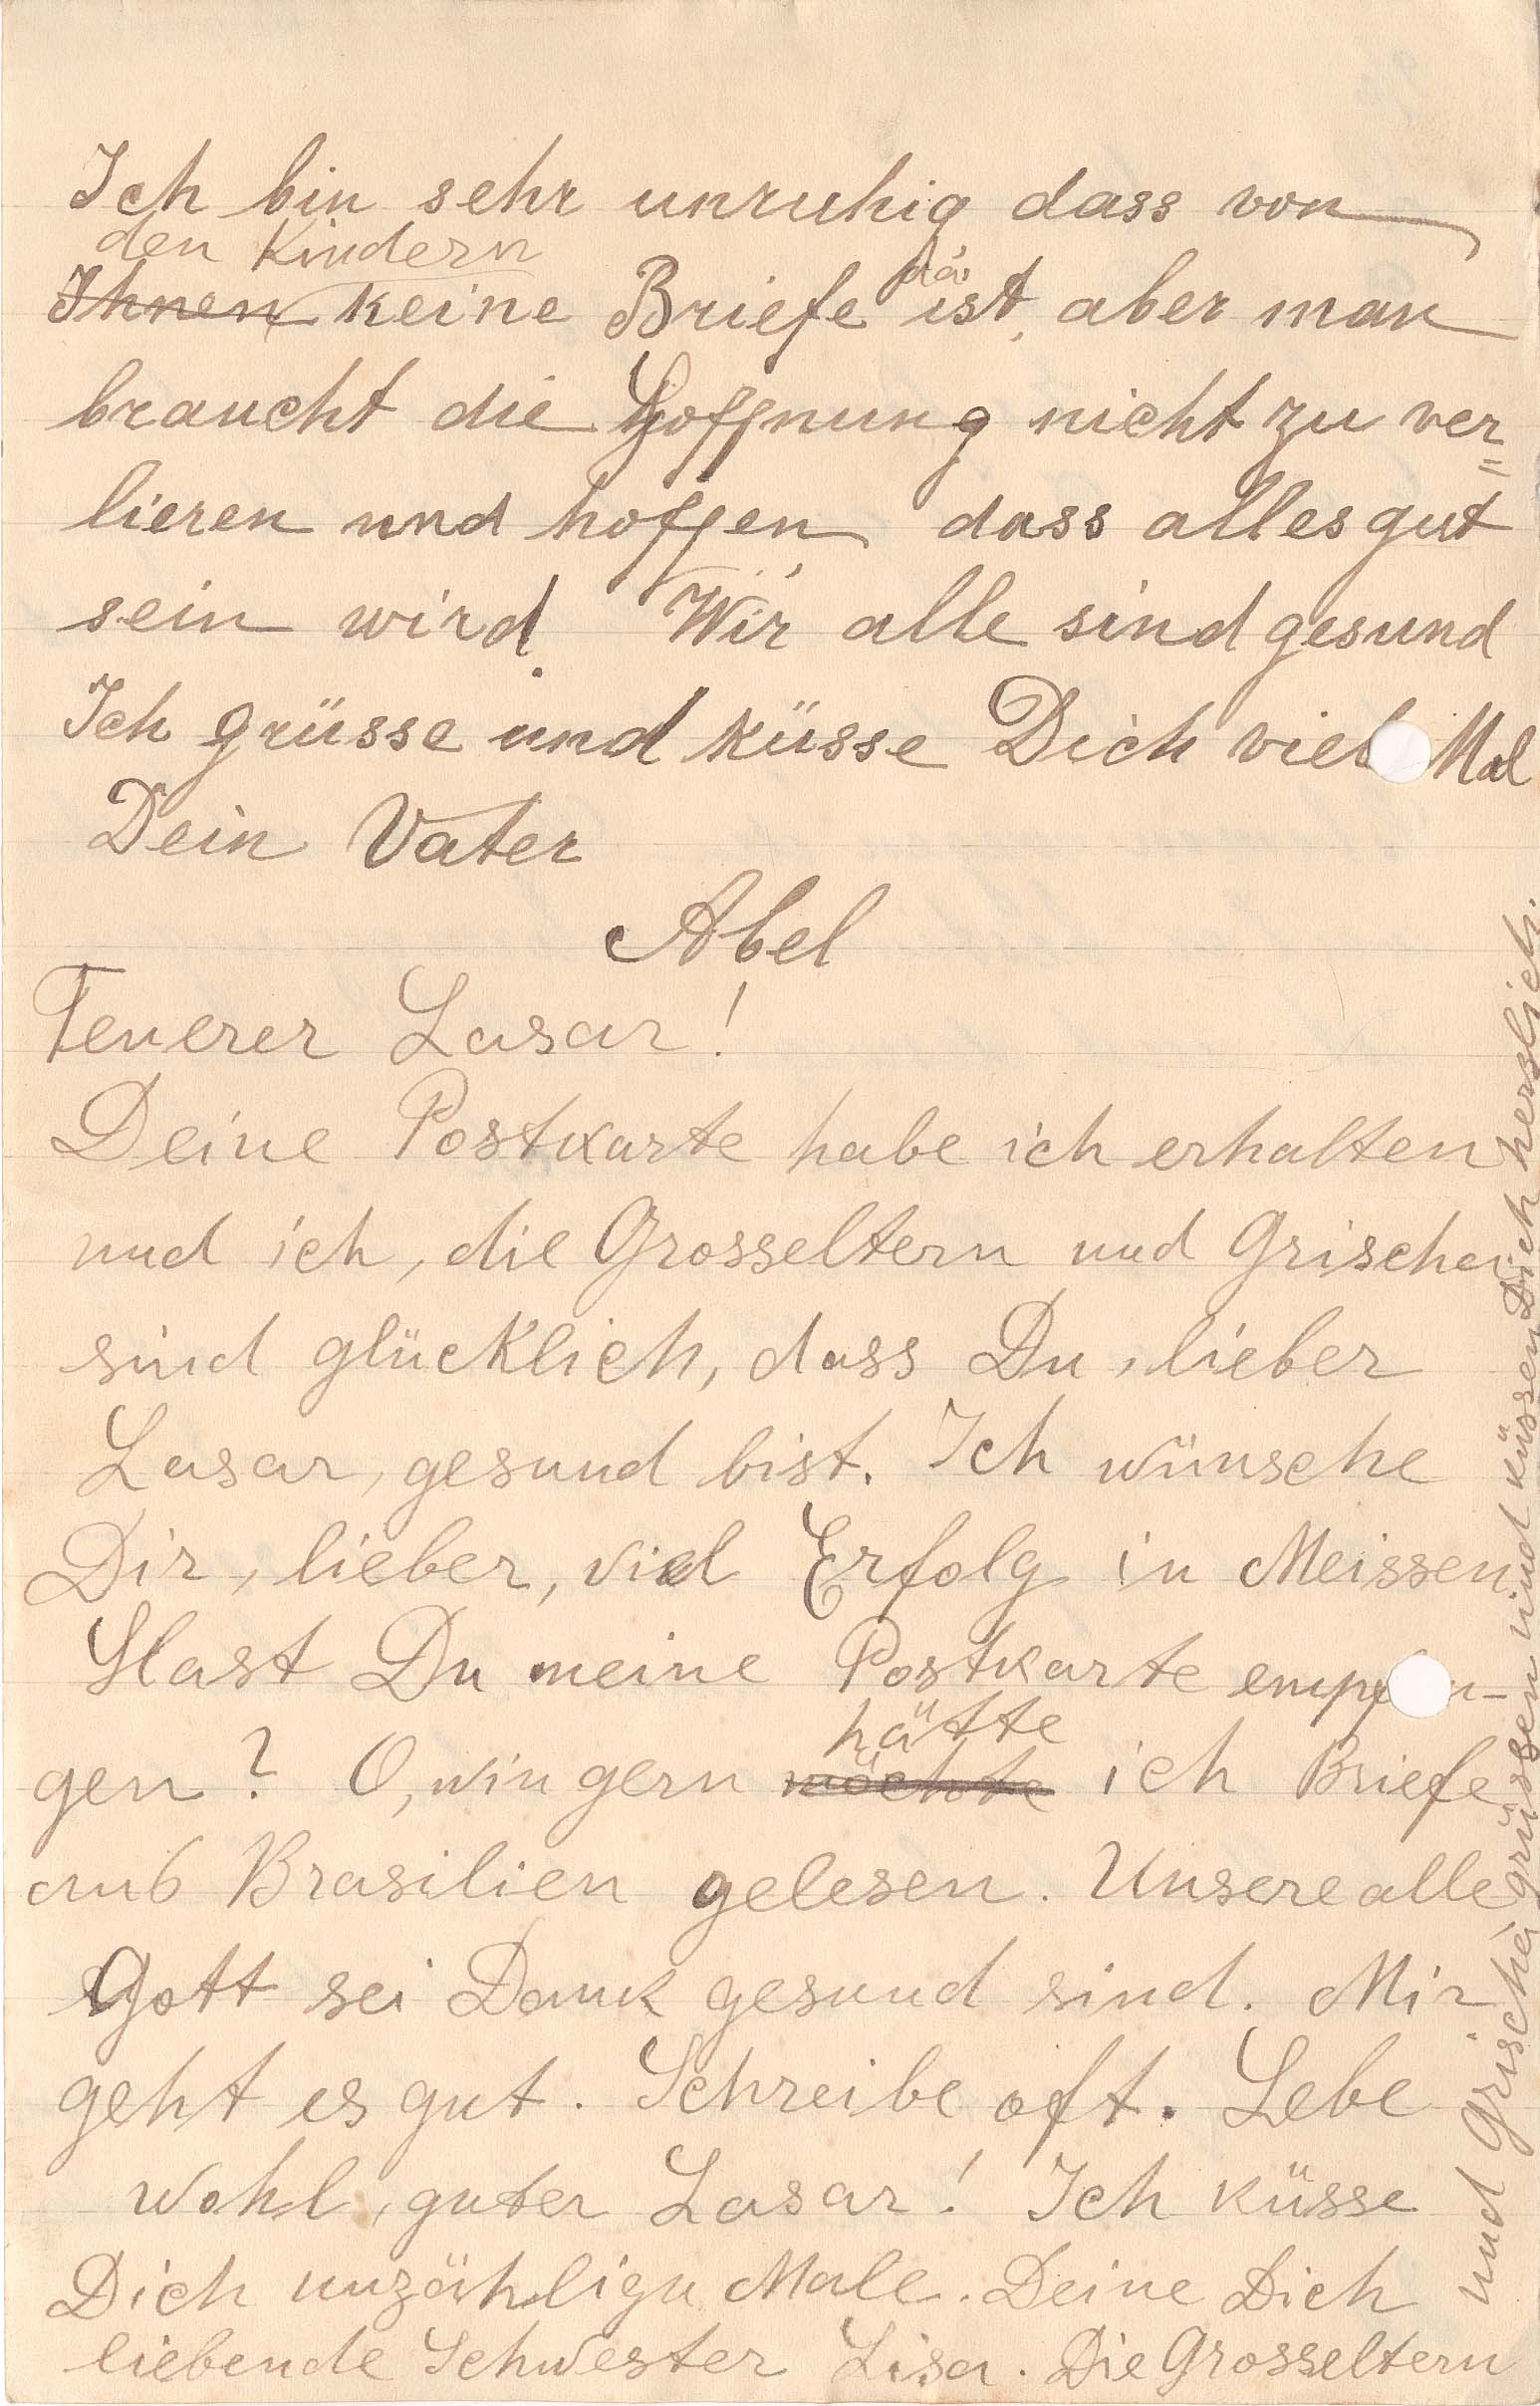 Ich bin sehr unruhig dass von
den Kindern
Ihnen keine Briefe da ist, aber man
braucht die Hoffnung nicht zu ver=
lieren und hoffen dass alles gut
sein wird. Wir alle sind gesund
Ich grüsse und küsse Dich viel Mal
Dein Vater
Abel
Teuerer Lasar!
Deine Postkarte habe ich erhalten
und ich, die Grosseltern und Grischa
sind glücklich, dass Du, lieber
Lasar, gesund bist. Ich wünsche
Dir, lieber, viel Erfolg in Meissen.
Hast Du meine Postkarte empfan-
hätte
gen? O, win gern möchte ich Briefe
aus Brasilien gelesen. Unsere alle
Gott sei Dank gesund sind. Mir
geht es gut. Schreibe oft. Lebe
wohl, guter Lasar! Ich küsse
Dich unzählign Male. Deine Dich
liebende Schwester Lisa. Die Grosseltern
und Grischa grüssen und küssen Dich herslich.